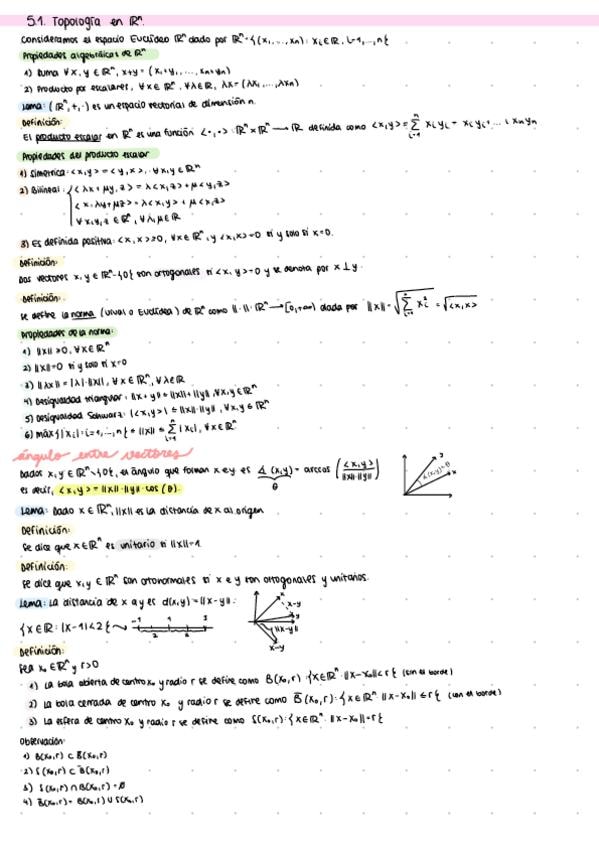 5.1. Topología en ℝⁿ.
Consideramos el espacio Euclídeo ℝⁿ dado por ℝⁿ={(x₁,...,xₙ): xᵢ∈ℝ, i=1,...,n}
Propiedades algebráicas de ℝⁿ
1) Suma ∀x,y ∈ ℝⁿ, x+y = (x₁+y₁,...,xₙ+yₙ)
2) Producto por escalares, ∀x∈ℝⁿ, ∀λ∈ℝ, λx=(λx₁,...,λxₙ)
Lema: (ℝⁿ,+,·) es un espacio vectorial de dimensión n.
Definición:
El producto escalar en ℝⁿ es una función <·,·>: ℝⁿ×ℝⁿ → ℝ definida como <x,y>= ∑ᵢ₌₁ⁿ xᵢyᵢ = x₁y₁+...+xₙyₙ
Propiedades del producto escalar
1) Simétrica: <x,y>=<y,x>, ∀x,y∈ℝⁿ
2) Bilineal: { <λx+μy,z> = λ<x,z>+μ<y,z>
<x,λy+μz>=λ<x,y>+μ<x,z>
∀x,y,z ∈ℝⁿ, ∀λ,μ∈ℝ
3) Es definida positiva: <x,x>≥0, ∀x∈ℝⁿ, y <x,x>=0 si y solo si x=0.
Definición:
Dos vectores x,y ∈ℝⁿ-{0} son ortogonales si <x,y>=0 y se denota por x⊥y.
Definición:
Se define la norma (usual o Euclídea) de ℝⁿ como ||·||: ℝⁿ→[0,+∞) dada por ||x||=√(∑ᵢ₌₁ⁿ xᵢ²) = √<x,x>
Propiedades de la norma:
1) ||x||≥0, ∀x∈ℝⁿ
2) ||x||=0 si y solo si x=0
3) ||λx||=|λ|·||x||, ∀x∈ℝⁿ, ∀λ∈ℝ
4) Desigualdad triangular: ||x+y||≤||x||+||y||, ∀x,y∈ℝⁿ
5) Desigualdad Schwarz: |<x,y>|≤||x||·||y||, ∀x,y∈ℝⁿ
6) máx{|xᵢ|:i=1,...,n}≤||x||≤∑ᵢ₌₁ⁿ|xᵢ|, ∀x∈ℝⁿ
ángulo entre vectores
Dados x,y∈ℝⁿ\{0}, el ángulo que forman x e y es ∡(x,y) = arccos(<x,y>/||x||·||y||)
θ
es decir, <x,y>=||x||·||y||·cos(θ).
y
∡(x,y)=θ
x
Lema: Dado x∈ℝⁿ, ||x|| es la distancia de x al origen
Definición:
Se dice que x∈ℝⁿ es unitario si ||x||=1.
Definición:
Se dice que x,y ∈ℝⁿ son ortonormales si x e y son ortogonales y unitarios.
Lema: La distancia de x a y es d(x,y)=||x-y||.
x
x-y
y
||x-y||
x-y
{x∈ℝ: |x-1|<2}
-1 1 3
2 2
Definición:
Sea x₀∈ℝⁿ y r>0
1) La bola abierta de centro x₀ y radio r se define como B(x₀,r):{x∈ℝⁿ: ||x-x₀||<r} (sin el borde)
2) La bola cerrada de centro x₀ y radio r se define como B̄(x₀,r):{x∈ℝⁿ: ||x-x₀||≤r} (con el borde)
3) La esfera de centro x₀ y radio r se define como S(x₀,r):{x∈ℝⁿ: ||x-x₀||=r}
Observación:
1) B(x₀,r) ⊂ B̄(x₀,r)
2) S(x₀,r) ⊂ B̄(x₀,r)
3) S(x₀,r) ∩ B(x₀,r) = ∅
4) B̄(x₀,r) = B(x₀,r) ∪ S(x₀,r)